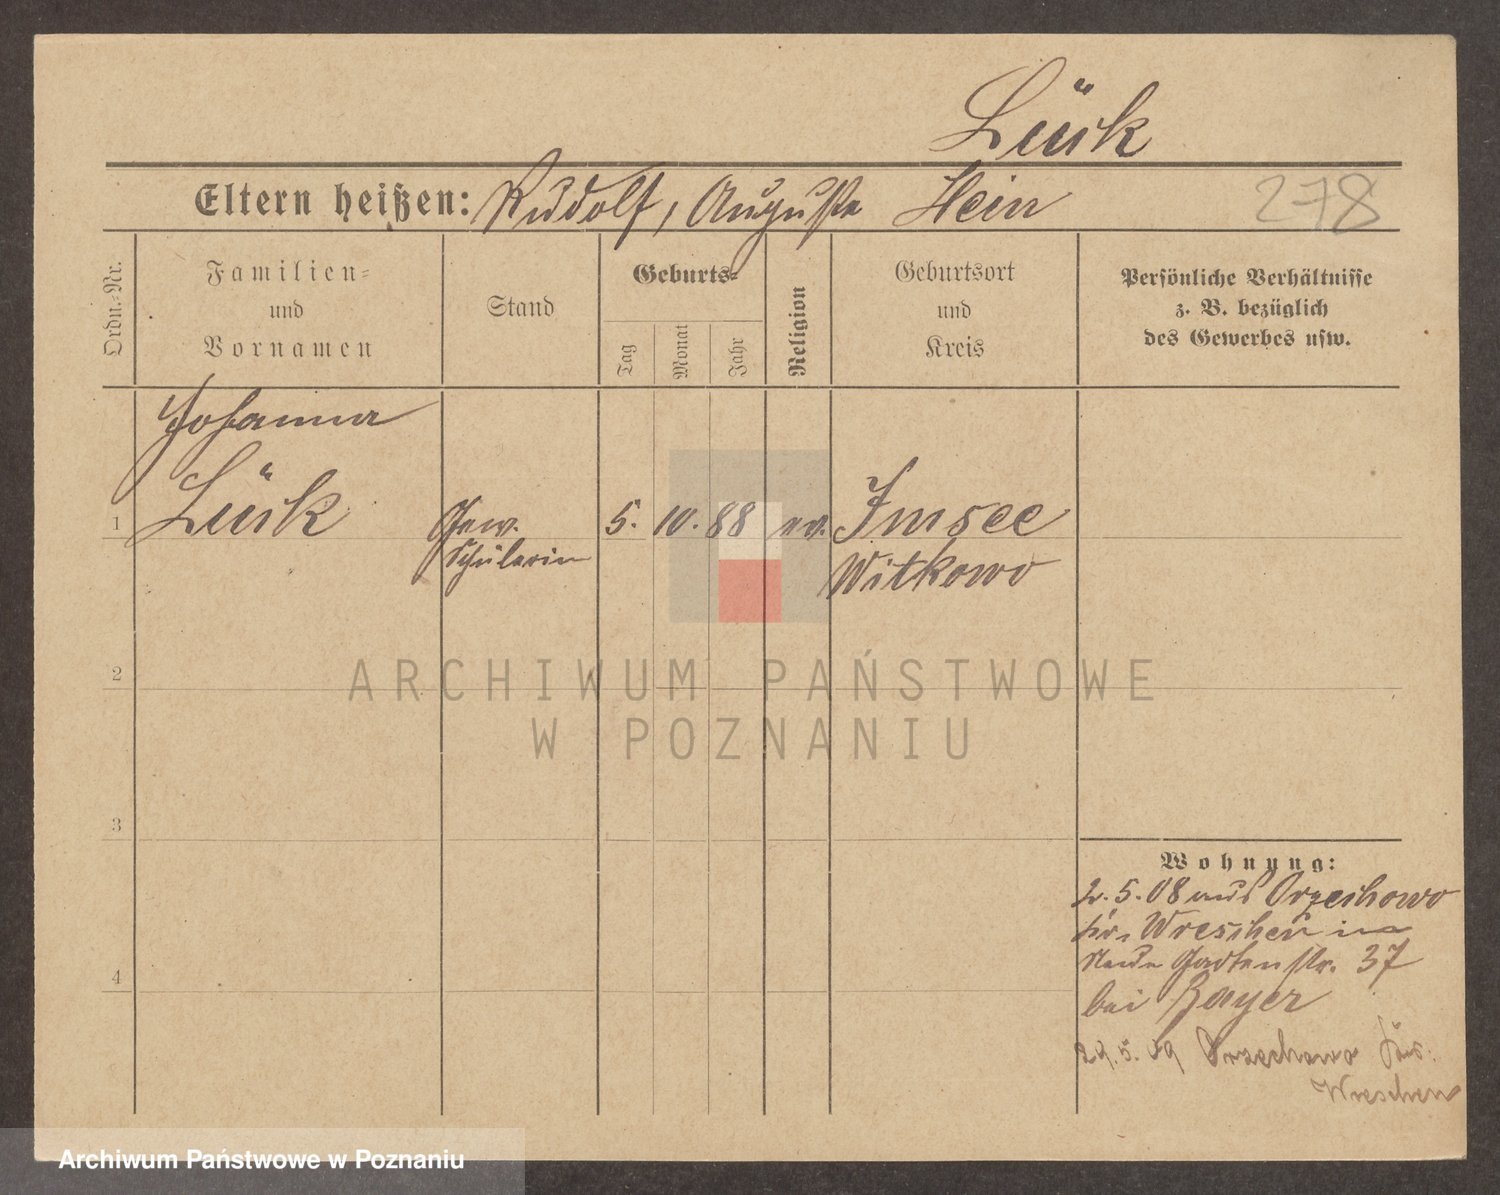 Lück
Eltern heißen: Rudolf, Auguste Hein
278
Ordn.-Nr.
Familien-
und
Vornamen
Stand
Geburts-
Tag
Monat
Jahr
Religion
Geburtsort
und
Kreis
Persönliche Verhältnisse
z. B. bezüglich
des Gewerbes usw.
Johanna
1 Lück Gew. 5. 10. 88 ev. Imsee
Schülerin Witkowo
2
3
4
Wohnung:
2. 5. 08 aus Orzechowo
Kr. Wreschen in
Neue Gartenstr. 37
bei
29. 5. 09 Orzechowo
Wreschen
ARCHIWUM PAŃSTWOWE
W POZNANIU
Archiwum Państwowe w Poznaniu